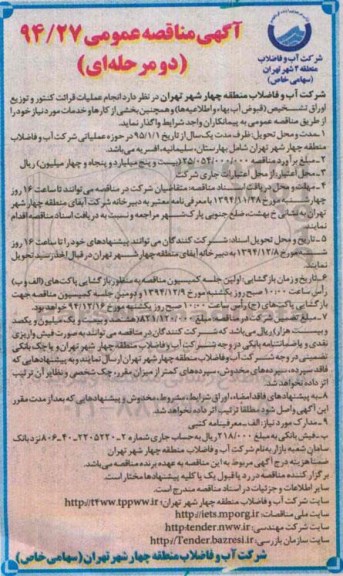 آگهی مناقصه عمومی ۹۴/۲۷
(دو مرحله‌ای)
شرکت آب و فاضلاب
منطقه ۴ شهر تهران
(سهامی خاص)
شرکت آب و فاضلاب منطقه چهار شهر تهران در نظر دارد انجام عملیات قرائت کنتور و توزیع
اوراق تشخیص (قبوض آب بهاء و اطلاعیه‌ها) و همچنین بخشی از کارها و خدمات مورد نیاز خود را
از طریق مناقصه عمومی به پیمانکاران واجد شرایط واگذار نماید.
۱ـ مدت و محل تحویل: ظرف مدت یک سال از تاریخ ۹۵/۱/۱ در حوزه عملیاتی شرکت آب و فاضلاب
منطقه چهار شهر تهران شامل بهارستان، سلیمانیه، افسریه می‌باشد.
۲ـ مبلغ برآورد مناقصه ۲۵/۰۵۴/۰۰۰/۰۰۰ (بیست و پنج میلیارد و پنجاه و چهار میلیون) ریال
۳ـ محل اعتبار: از محل اعتبارات جاری شرکت
۴ـ مهلت و محل دریافت اسناد مناقصه: متقاضیان شرکت در مناقصه می‌توانند تا ساعت ۱۶ روز
چهارشنبه مورخ ۱۳۹۴/۱۱/۲۸ با معرفی نامه معتبر به دبیرخانه شرکت آبفای منطقه چهار شهر
تهران به نشانی خ بهشت، ضلع جنوبی پارک شهر مراجعه و نسبت به دریافت اسناد مناقصه اقدام
نمایند.
۵ـ تاریخ و محل تحویل اسناد: شرکت کنندگان می‌توانند پیشنهادهای خود را تا ساعت ۱۶ روز
شنبه مورخ ۱۳۹۴/۱۲/۸ به دبیرخانه آبفای منطقه چهار شهر تهران در قبال اخذ رسید تحویل
نمایند.
۶ـ تاریخ و زمان بازگشایی: اولین جلسه کمیسیون مناقصه به منظور بازگشایی پاکت‌های (الف و ب)
رأس ساعت ۱۰:۰۰ صبح روز یکشنبه مورخ ۱۳۹۴/۱۲/۹ و دومین جلسه کمیسیون مناقصه جهت
بازگشایی پاکت‌های (ج) رأس ساعت ۱۰:۰۰ صبح روز یکشنبه مورخ ۹۴/۱۲/۱۶ خواهد بود.
۷ـ مبلغ تضمین شرکت در مناقصه مبلغ (هشتصد و بیست و یک میلیون و یکصد
و بیست هزار) ریال می‌باشد که شرکت کنندگان در مناقصه می‌توانند به صورت فیش واریزی
نقدی و یا ضمانتنامه بانکی در وجه شرکت آب و فاضلاب منطقه چهار شهر تهران و یا چک بانکی
تضمینی در وجه شرکت آب و فاضلاب منطقه چهار شهر تهران ارسال نمایند و به پیشنهادهایی که
فاقد سپرده، سپرده‌های مخدوش، سپرده‌های کمتر از میزان مقرر، چک شخصی و نظایر آن ترتیب
اثر داده نخواهد شد.
۸ـ به پیشنهادهای فاقد امضاء، اوراق شرایط، مشروط، مخدوش و پیشنهادهایی که بعد از مدت مقرر
این آگهی واصل شود مطلقا ترتیب اثر داده نخواهد شد.
۹ـ مدارک مورد نیاز: الف ـ معرفینامه کتبی
ب ـ فیش بانکی به مبلغ ۲۱۸/۰۰۰ ریال به حساب جاری شماره ۲ـ۲۲۰۵۲۲۰ـ۴۰ـ۸۰۶ نزد بانک
سامان شعبه بازار به نام شرکت آب و فاضلاب منطقه چهار شهر تهران
ضمنا هزینه درج آگهی مربوط به این مناقصه به عهده برنده مناقصه می‌باشد.
برگزار کننده مناقصه در رد یا قبول یک یا کلیه پیشنهادها مختار است.
سایر اطلاعات و جزئیات در اسناد مناقصه مندرج است.
سایت شرکت آب و فاضلاب منطقه چهار شهر تهران: http://t4ww.tppww.ir
سایت ملی مناقصات: http://iets.mporg.ir
سایت شرکت مهندسی: http:tender.nww.ir
سایت سازمان بازرسی: http://Tender.bazresi.ir
شرکت آب و فاضلاب منطقه چهار شهر تهران (سهامی خاص)